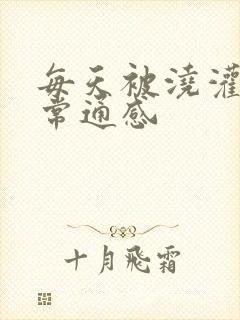 每天被浇灌
常通感
十月飛霜